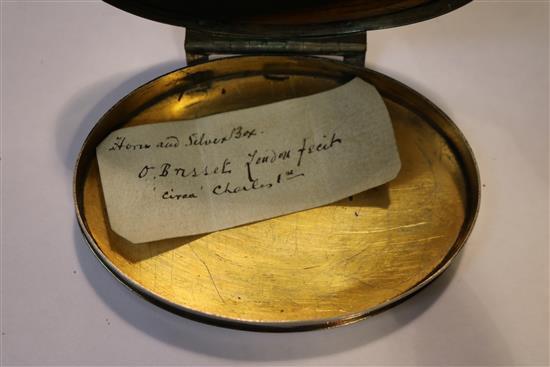 Horn and Silver Box.
O. Brisset London fecit
'circa' Charles 1st